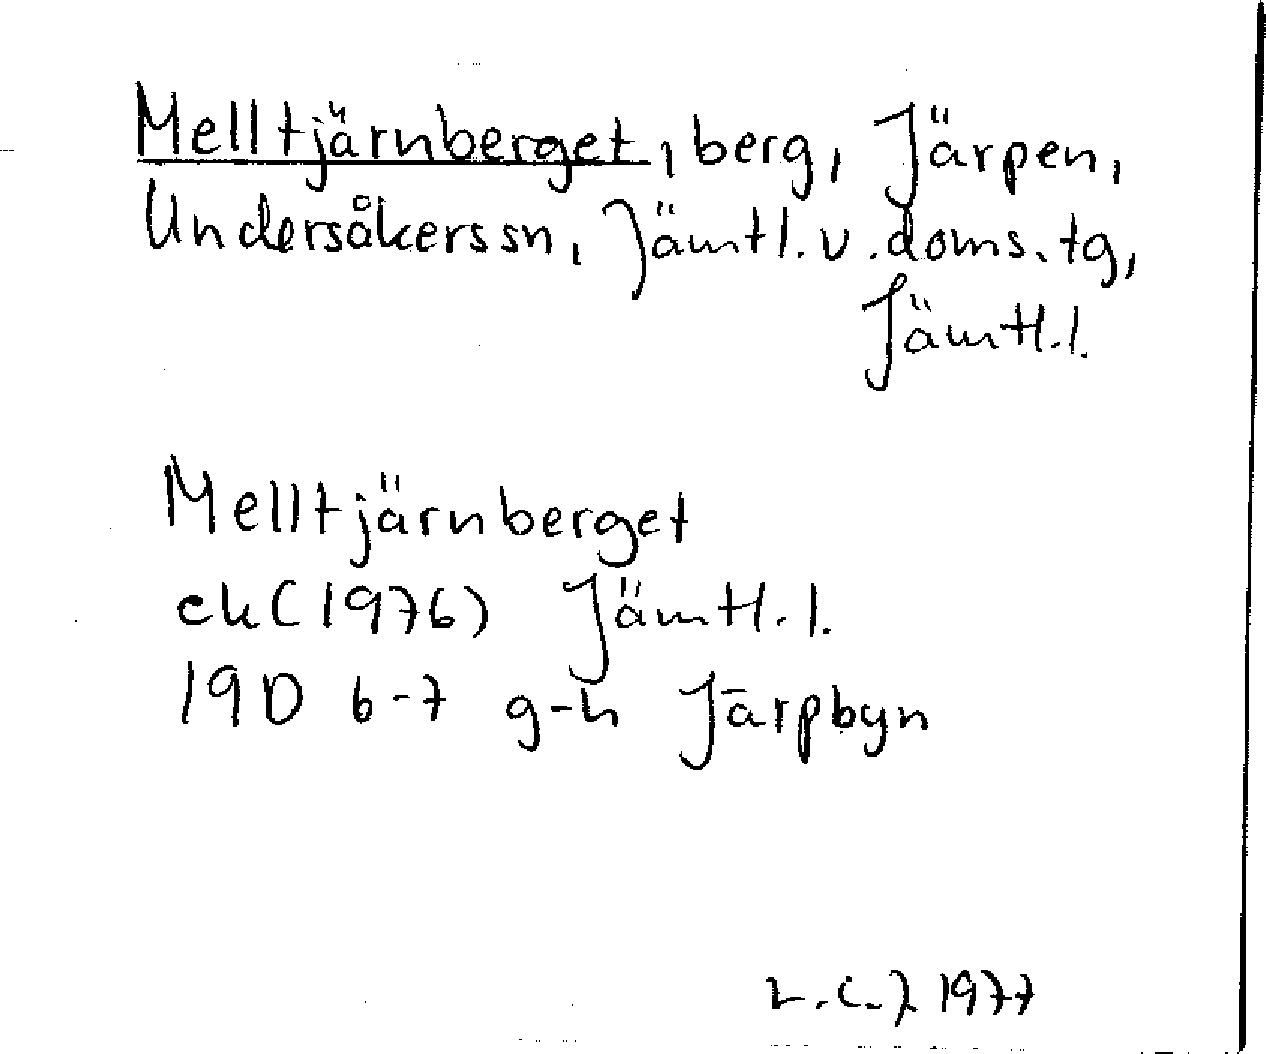 Melltjärnberget, berg, Järpen,
Undersåkers sn, Jämtl. v. doms. tg,
Jämtl. l.
Melltjärnberget
ek (1976) Jämtl. l.
19D 6-7 g-h Järpbyn
L.C.J. 1977